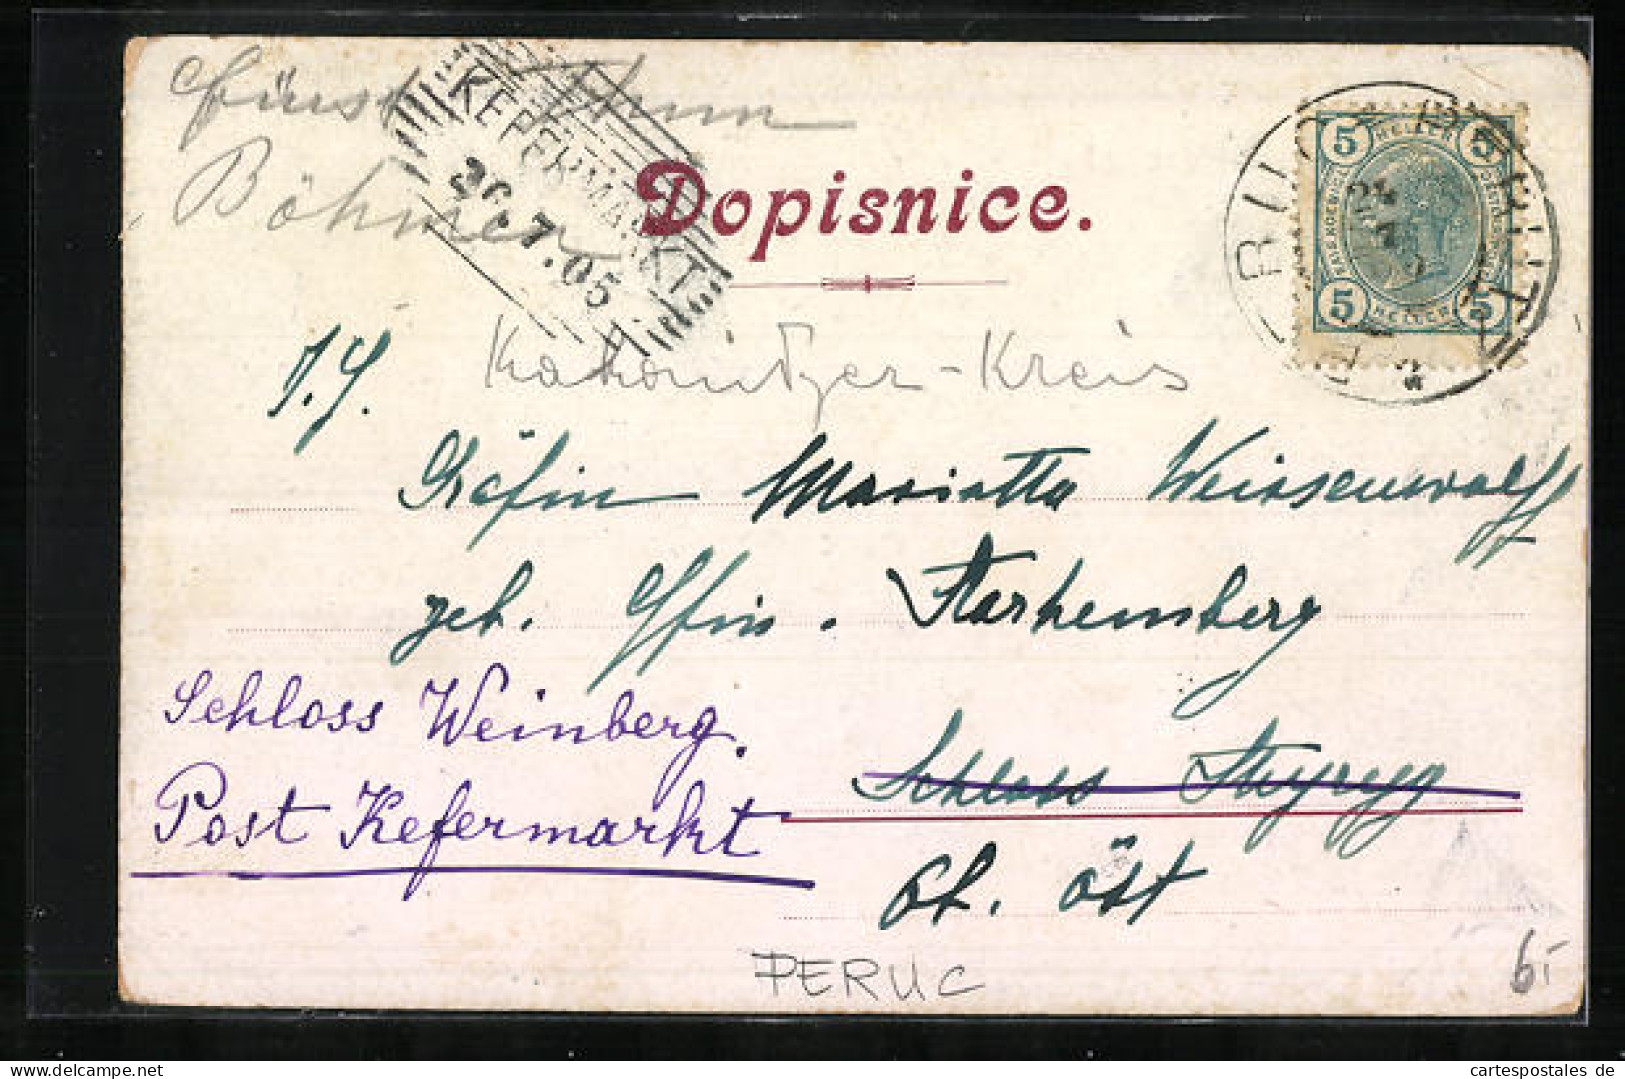 Fürst Thun
Böhmen
KEFERMARKT
26.7.05
Dopisnice.
PERUC
5 HELLER 5
5 HELLER 5
Rakonitzer-Kreis
I. G.
Gräfin Marietta Weissenwolff
geb. Gfin. Starhemberg
Schloss Weinberg.
Post Kefermarkt
Schloss Steyregg
Ob. Öst
PERUC
6,-
delcampe.net
cartespostales de